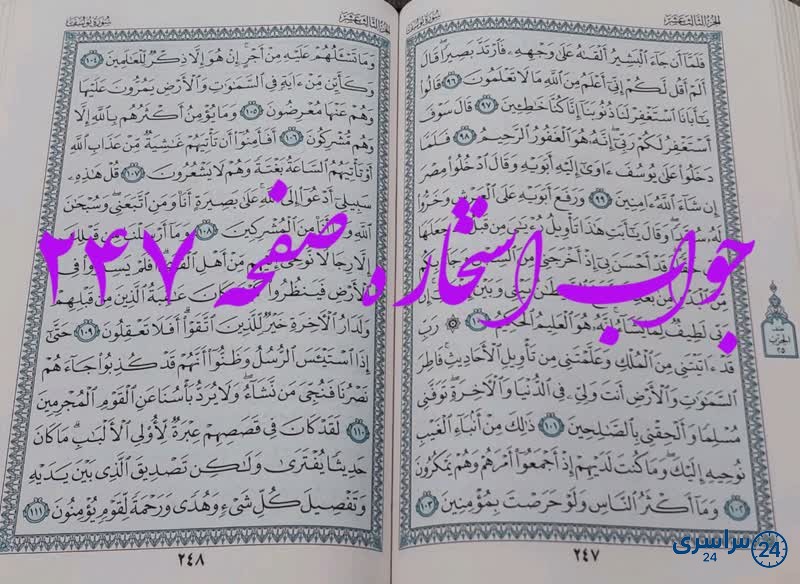 الجزء الثالث عشر
سورة يوسف
فَلَمَّآ أَن جَآءَ ٱلْبَشِيرُ أَلْقَىٰهُ عَلَىٰ وَجْهِهِۦ فَٱرْتَدَّ بَصِيرًا ۖ قَالَ
أَلَمْ أَقُل لَّكُمْ إِنِّىٓ أَعْلَمُ مِنَ ٱللَّهِ مَا لَا تَعْلَمُونَ ٩٦ قَالُوا۟
يَٰٓأَبَانَا ٱسْتَغْفِرْ لَنَا ذُنُوبَنَآ إِنَّا كُنَّا خَٰطِـِٔينَ ٩٧ قَالَ سَوْفَ
أَسْتَغْفِرُ لَكُمْ رَبِّىٓ ۖ إِنَّهُۥ هُوَ ٱلْغَفُورُ ٱلرَّحِيمُ ٩٨ فَلَمَّا
دَخَلُوا۟ عَلَىٰ يُوسُفَ ءَاوَىٰٓ إِلَيْهِ أَبَوَيْهِ وَقَالَ ٱدْخُلُوا۟ مِصْرَ
إِن شَآءَ ٱللَّهُ ءَامِنِينَ ٩٩ وَرَفَعَ أَبَوَيْهِ عَلَى ٱلْعَرْشِ وَخَرُّوا۟
لَهُۥ سُجَّدًا ۖ وَقَالَ يَٰٓأَبَتِ هَٰذَا تَأْوِيلُ رُءْيَٰىَ مِن قَبْلُ جَعَلَهَا
قَدْ أَحْسَنَ بِىٓ إِذْ أَخْرَجَنِى مِنَ
رَبِّى لَطِيفٌ لِّمَا يَشَآءُ ۚ إِنَّهُۥ هُوَ ٱلْعَلِيمُ ٱلْحَكِيمُ ١٠٠ ۞ رَبِّ
قَدْ ءَاتَيْتَنِى مِنَ ٱلْمُلْكِ وَعَلَّمْتَنِى مِن تَأْوِيلِ ٱلْأَحَادِيثِ ۚ فَاطِرَ
ٱلسَّمَٰوَٰتِ وَٱلْأَرْضِ أَنتَ وَلِىِّۦ فِى ٱلدُّنْيَا وَٱلْءَاخِرَةِ ۖ تَوَفَّنِى
مُسْلِمًا وَأَلْحِقْنِى بِٱلصَّٰلِحِينَ ١٠١ ذَٰلِكَ مِنْ أَنۢبَآءِ ٱلْغَيْبِ
نُوحِيهِ إِلَيْكَ ۖ وَمَا كُنتَ لَدَيْهِمْ إِذْ أَجْمَعُوٓا۟ أَمْرَهُمْ وَهُمْ يَمْكُرُونَ
١٠٢ وَمَآ أَكْثَرُ ٱلنَّاسِ وَلَوْ حَرَصْتَ بِمُؤْمِنِينَ ١٠٣
٢٤٧
الحزب
٢٥
الجزء الثالث عشر
سورة يوسف
وَمَا تَسْـَٔلُهُمْ عَلَيْهِ مِنْ أَجْرٍ ۚ إِنْ هُوَ إِلَّا ذِكْرٌ لِّلْعَٰلَمِينَ ١٠٤
وَكَأَيِّن مِّنْ ءَايَةٍ فِى ٱلسَّمَٰوَٰتِ وَٱلْأَرْضِ يَمُرُّونَ عَلَيْهَا
وَهُمْ عَنْهَا مُعْرِضُونَ ١٠٥ وَمَا يُؤْمِنُ أَكْثَرُهُم بِٱللَّهِ إِلَّا
وَهُم مُّشْرِكُونَ ١٠٦ أَفَأَمِنُوٓا۟ أَن تَأْتِيَهُمْ غَٰشِيَةٌ مِّنْ عَذَابِ ٱللَّهِ
أَوْ تَأْتِيَهُمُ ٱلسَّاعَةُ بَغْتَةً وَهُمْ لَا يَشْعُرُونَ ١٠٧ قُلْ هَٰذِهِۦ
سَبِيلِىٓ أَدْعُوٓا۟ إِلَى ٱللَّهِ ۚ عَلَىٰ بَصِيرَةٍ أَنَا۠ وَمَنِ ٱتَّبَعَنِى ۖ وَسُبْحَٰنَ
ٱللَّهِ وَمَآ أَنَا۠ مِنَ ٱلْمُشْرِكِينَ ١٠٨ وَمَآ أَرْسَلْنَا مِن قَبْلِكَ
إِلَّا رِجَالًا نُّوحِىٓ إِلَيْهِم مِّنْ أَهْلِ ٱلْقُرَىٰٓ ۗ أَفَلَمْ يَسِيرُوا۟ فِى
ٱلْأَرْضِ فَيَنظُرُوا۟ كَيْفَ كَانَ عَٰقِبَةُ ٱلَّذِينَ مِن قَبْلِهِمْ ۗ
وَلَدَارُ ٱلْءَاخِرَةِ خَيْرٌ لِّلَّذِينَ ٱتَّقَوْا۟ ۗ أَفَلَا تَعْقِلُونَ ١٠٩ حَتَّىٰٓ
إِذَا ٱسْتَيْـَٔسَ ٱلرُّسُلُ وَظَنُّوٓا۟ أَنَّهُمْ قَدْ كُذِبُوا۟ جَآءَهُمْ
نَصْرُنَا فَنُجِّىَ مَن نَّشَآءُ ۖ وَلَا يُرَدُّ بَأْسُنَا عَنِ ٱلْقَوْمِ ٱلْمُجْرِمِينَ
١١٠ لَقَدْ كَانَ فِى قَصَصِهِمْ عِبْرَةٌ لِّأُو۟لِى ٱلْأَلْبَٰبِ ۗ مَا كَانَ
حَدِيثًا يُفْتَرَىٰ وَلَٰكِن تَصْدِيقَ ٱلَّذِى بَيْنَ يَدَيْهِ
وَتَفْصِيلَ كُلِّ شَىْءٍ وَهُدًى وَرَحْمَةً لِّقَوْمٍ يُؤْمِنُونَ ١١١
٢٤٨
جواب استخاره صفحه ۲۴۷
سراسری 24
24